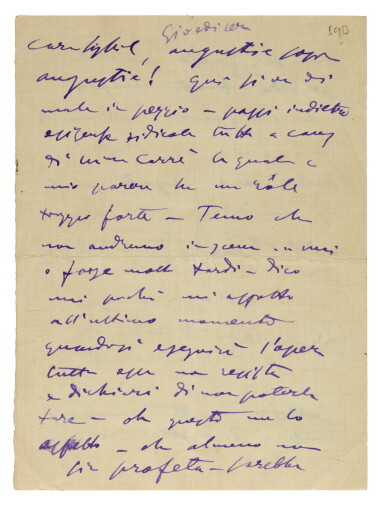 Giovedì sera
190
Cara Sybil, angustie sopra
angustie! Qui si va di
male in peggio – passi indietro
esigenze ridicole tutto a causa
di mm Carré la quale a
mio parere ha un rôle
troppo forte – Temo che
non andremo in scena mai
o forse molto tardi – dico
mai poichè mi aspetto
all'ultimo momento
quando si eseguirà l'opera
tutta essa non resista
e dichiari di non poterla
fare – oh questo me lo
aspetto – oh almeno non
sia profeta – sarebbe